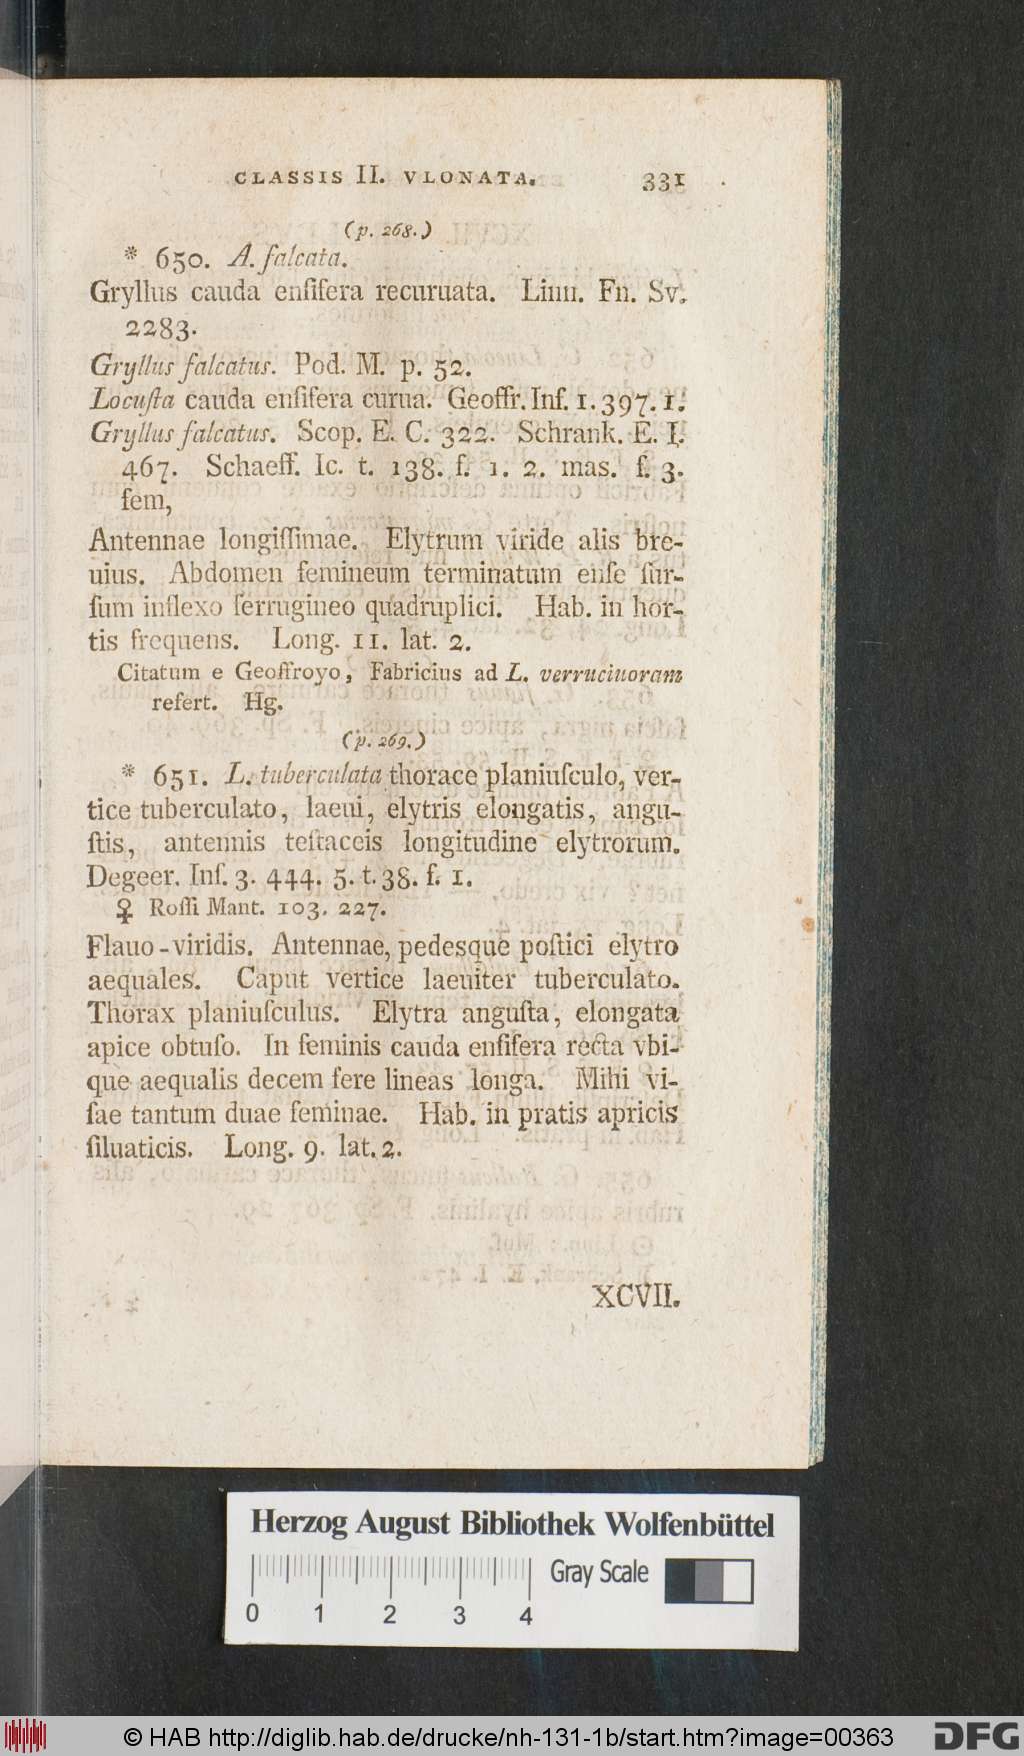 CLASSIS II. VLONATA. 331
(p. 268.)
* 650. A. falcata.
Gryllus cauda enſifera recuruata. Linn. Fn. Sv.
2283.
Gryllus falcatus. Pod. M. p. 52.
Locuſta cauda enſifera curua. Geoffr. Inſ. 1. 397. 1.
Gryllus falcatus. Scop. E. C. 322. Schrank. E. I.
467. Schaeff. Ic. t. 138. f. 1. 2. mas. f. 3.
fem,
Antennae longiſſimae. Elytrum viride alis bre-
uius. Abdomen femineum terminatum enſe ſur-
ſum inflexo ferrugineo quadruplici. Hab. in hor-
tis frequens. Long. 11. lat. 2.
Citatum e Geoffroyo, Fabricius ad L. verruciuoram
refert. Hg.
(p. 269.)
* 651. L. tuberculata thorace planiuſculo, ver-
tice tuberculato, laeui, elytris elongatis, angu-
ſtis, antennis teſtaceis longitudine elytrorum.
Degeer. Inſ. 3. 444. 5. t. 38. f. 1.
♀ Roſſi Mant. 103. 227.
Flauo-viridis. Antennae, pedesque poſtici elytro
aequales. Caput vertice laeuiter tuberculato.
Thorax planiuſculus. Elytra anguſta, elongata
apice obtuſo. In feminis cauda enſifera recta vbi-
que aequalis decem fere lineas longa. Mihi vi-
ſae tantum duae feminae. Hab. in pratis apricis
ſiluaticis. Long. 9. lat. 2.
XCVII.
Herzog August Bibliothek Wolfenbüttel
Gray Scale
0 1 2 3 4
© HAB http://diglib.hab.de/drucke/nh-131-1b/start.htm?image=00363
DFG